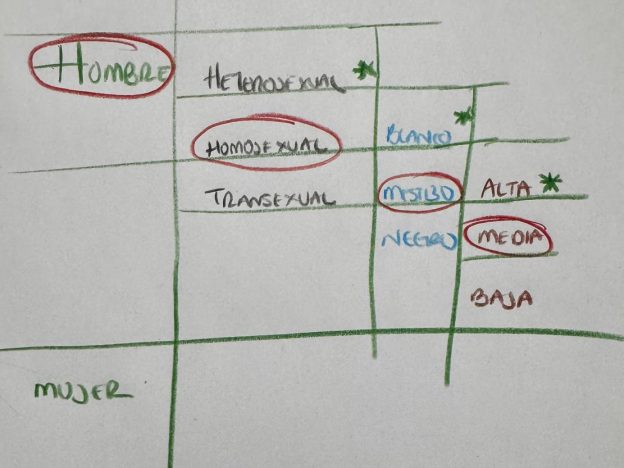 HOMBRE
HETEROSEXUAL *
HOMOSEXUAL
TRANSEXUAL
BLANCO *
MESTIZO
NEGRO
ALTA *
MEDIA
BAJA
MUJER